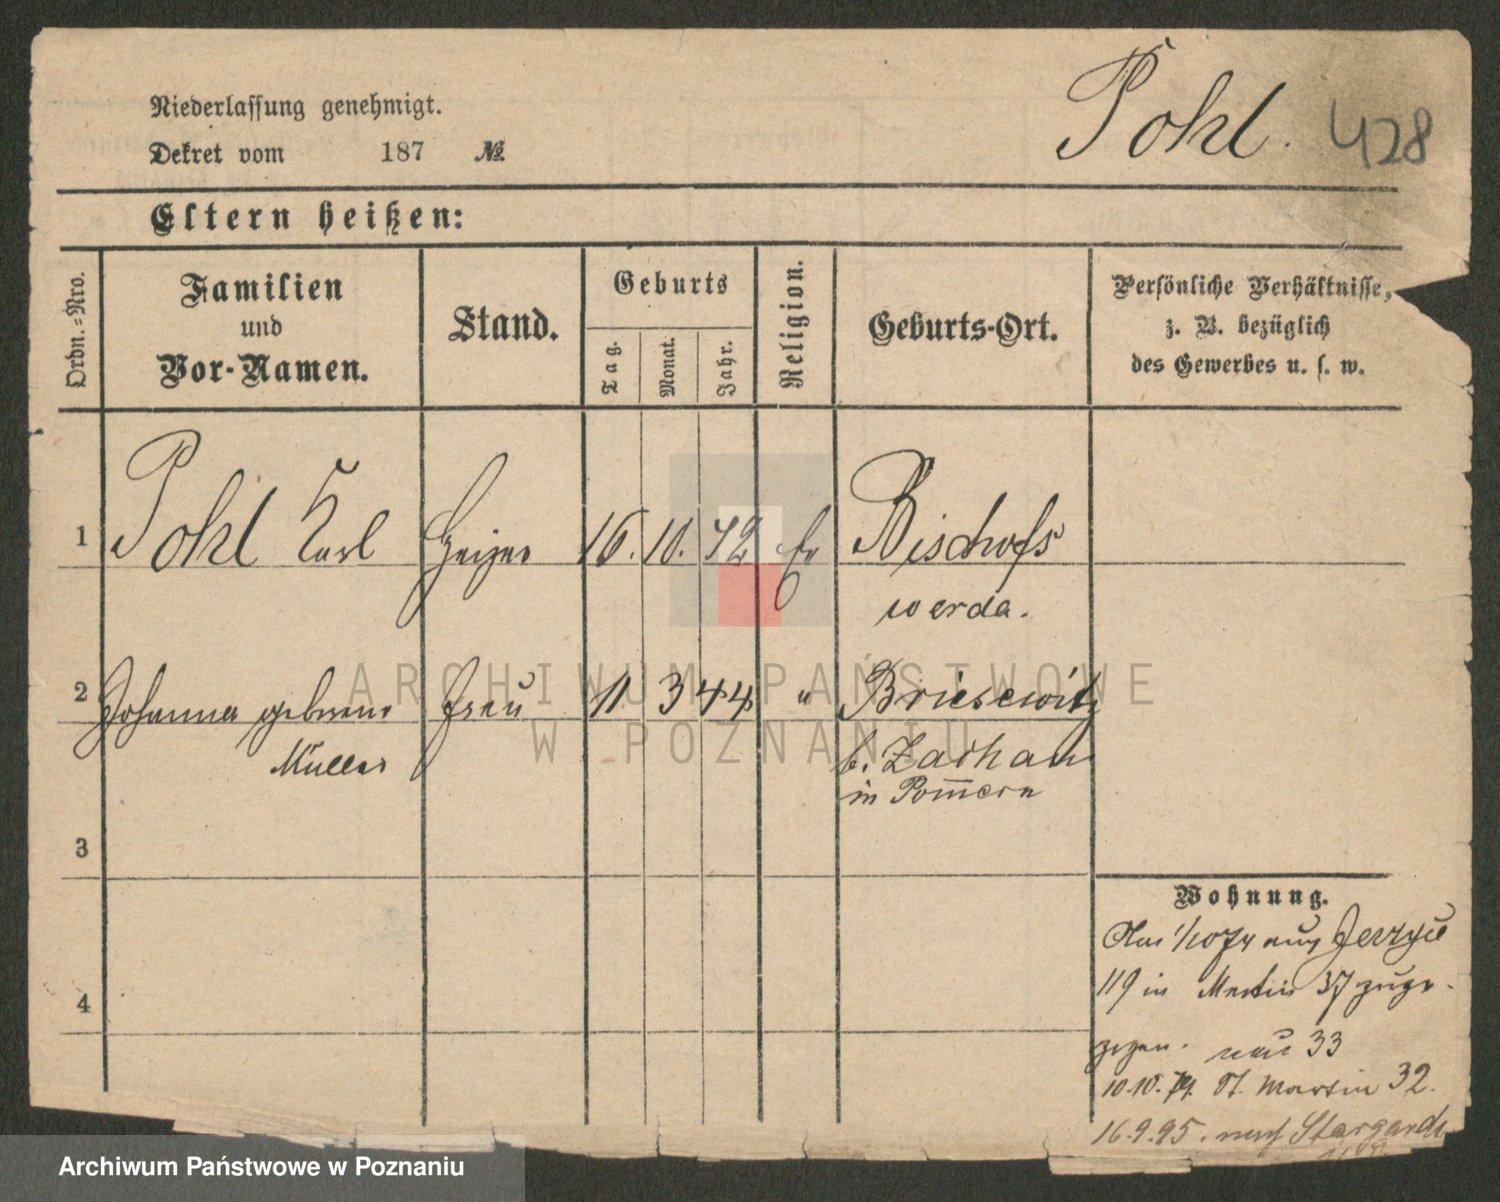 Pohl. 428
Niederlassung genehmigt.
Dekret vom 187 №
Eltern heißen:
Ordn.-Nro.
Familien
und
Vor-Namen.
Stand.
Geburts
Tag.
Monat.
Jahr.
Religion.
Geburts-Ort.
Persönliche Verhältnisse,
z. B. bezüglich
des Gewerbes u. s. w.
1 Pohl Karl Heizer 16. 10. 42 Ev Bischofs
werda.
2 Johanna geborene Frau 11 3 44 " Briesewitz
Müller b. Zachan
in Pommern
3
4
Wohnung.
Am 1/10 74 aus Jerzyce
119 in Martin 37 zuge-
zogen. neu 33
10.10.79. St. Martin 32.
16.9.95. nach Stargard
ARCHIWUM PAŃSTWOWE
W POZNANIU
Archiwum Państwowe w Poznaniu